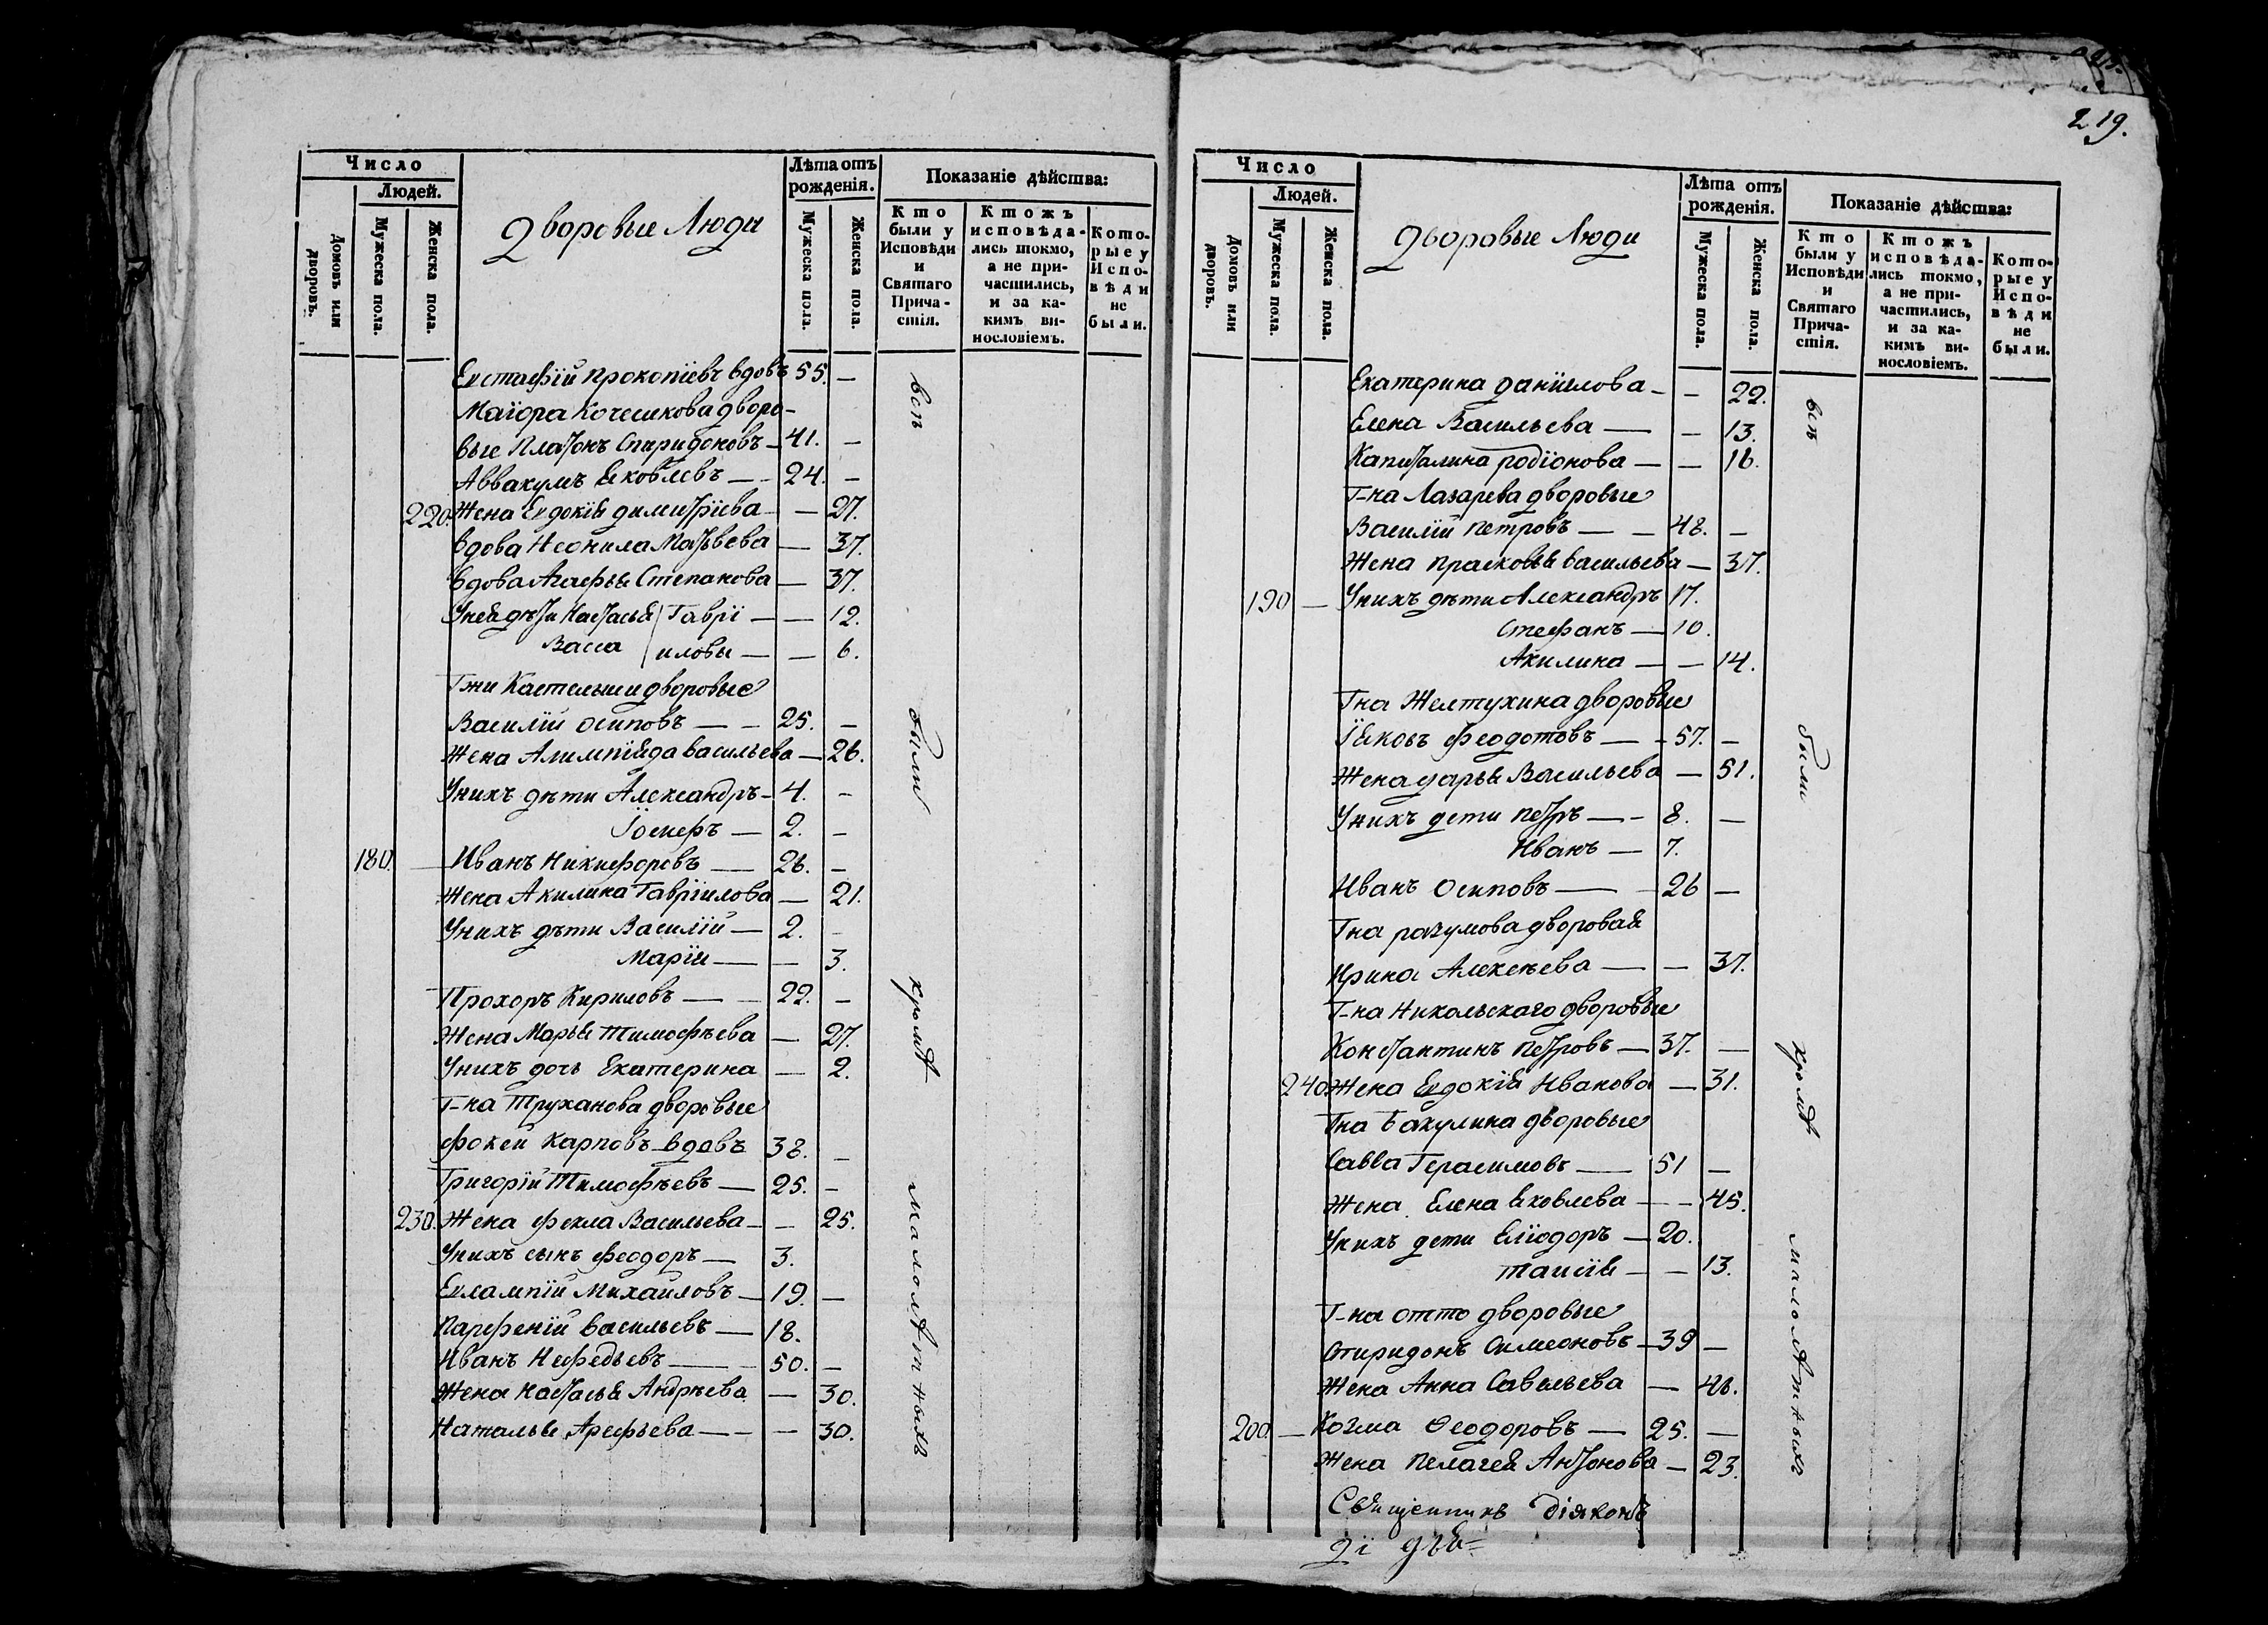 219.
Число
Людей.
Домовъ или дворовъ.
Мужеска пола.
Женска пола.
Дворовые Люди
Лѣта отъ рожденія.
Мужеска пола.
Женска пола.
Показаніе дѣйства:
Кто были у Исповѣди и Святаго Причастія.
Ктожъ исповѣдались токмо, а не причастились, и за какимъ винословіемъ.
Которые у Исповѣди не были.
Евстафій Прокопіевъ вдовъ 55. —
Маіора Кочешкова дворо-
вые Платонъ Спиридоновъ — 41. —
Аввакумъ Яковлевъ — 24. —
220. Жена Евдокія Димитріева — — 27.
вдова Неонила Матвѣева — 37.
вдова Агафья Степанова — 37.
У нея дѣти Настасья Гаврі — — 12.
Васса иловы — — 6.
Гжи дворовые
Василій Осиповъ — — 25. —
Жена Алимпіяда Васильева — 26.
У нихъ дѣти Александръ — 4. —
Іосифъ — 2. —
180. — Иванъ Никифоровъ — 26. —
Жена Акилина Гавріилова — 21.
У нихъ дѣти Василій — 2. —
Марія — — 3.
Прохоръ Кириловъ — — 22. —
Жена Марья Тимофѣева — 27.
У нихъ дочь Екатерина — 2.
Г-на Труханова дворовые
Фокей Карповъ вдовъ 38. —
Григорій Тимофѣевъ — 25. —
230. Жена Фекла Васильева — — 25.
У нихъ сынъ Феодоръ — 3.
Евлампій Михайловъ — 19. —
Парфеній Васильевъ — 18.
Иванъ Нефедьевъ — 50. —
Жена Настасья Андрѣева — 30.
Наталья Арефьева — — — 30.
всѣ были кромѣ малолѣтныхъ
Число
Людей.
Домовъ или дворовъ.
Мужеска пола.
Женска пола.
Дворовые Люди
Лѣта отъ рожденія.
Мужеска пола.
Женска пола.
Показаніе дѣйства:
Кто были у Исповѣди и Святаго Причастія.
Ктожъ исповѣдались токмо, а не причастились, и за какимъ винословіемъ.
Которые у Исповѣди не были.
Екатерина Даніилова — — 22.
Елена Васильева — — 13.
Капиталина Родіонова — — 16.
Г-на Лазарева дворовые
Василій Петровъ — — 48. —
Жена Прасковья Васильева — 37.
190 — У нихъ дѣти Александръ 17.
Стефанъ — 10.
Акилина — — 14.
Гна Желтухина дворовые
Іяковъ Феодотовъ — — 57. —
Жена Дарья Васильева — 51.
У нихъ дети Петръ — — 8. —
Иванъ — 7.
Иванъ Осиповъ — — 26 —
Гна Разумова дворовая
Ирина Алексѣева — — 37.
Г-на Никольскаго дворовые
Константинъ Петровъ — 37. —
240. Жена Евдокія Иванова — 31.
Гна Бакулина дворовые
Савва Герасимовъ — 51 —
Жена Елена Яковлева — — 45.
У нихъ дети Еліодоръ — 20.
Таисія — — 13.
Г-на Отто дворовые
Спиридонъ Симеоновъ — 39 —
Жена Анна Савельева — 46.
200. — Козма Ѳеодоровъ — 25. —
Жена Пелагея Антонова — 23.
всѣ были кромѣ малолѣтныхъ
Священникъ Діяконъ